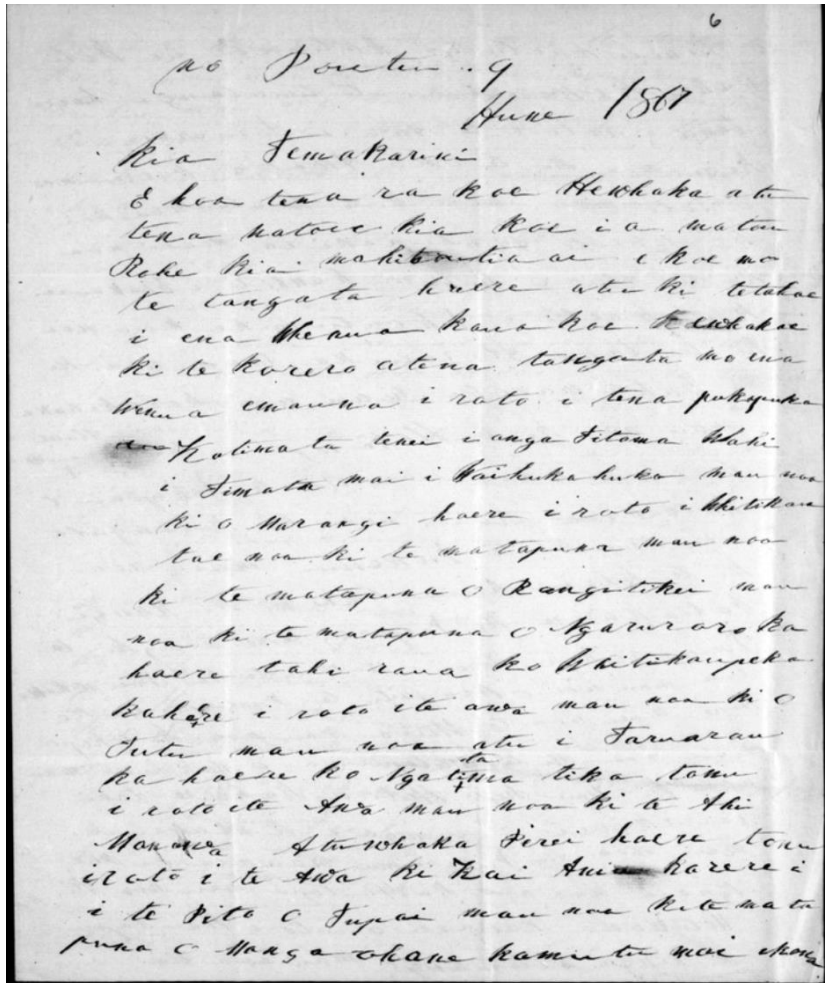 6
no Poutu . 9
Hune 1867
Kia Temakarini
E hoa tena ra koe Hewhaka atu
tena natoie kia koe i a matou
Rohe kia mohiotia ai e koe mo
te tangata haere atu ki tetahae
i ena Whenua kaua koe e whakaae
ki te korero atena tangata mo ena
wenua emauna i roto i tena pukapuka
Kotimata tenei i anga Pitoma Waki
i Timata mai i Waihukahuka mau noa
ki o Marangi haere i roto i Whitikau
tae noa ki te matapuna mau noa
ki te matapuna o Rangitikei mau
noa ki te matapuna o Ngaruroro ka
haere tahi raua ko Whitikaupeka
kahaere i roto ite awa mau noa ki o
Tutu mau noa atu i Taruarau
ka haere ko Ngatitama tika tonu
i roto ite Awa mau noa ki te Ahi
Manawa Atuwhaka Perei haere tonu
iroto i te Awa ki Kai karere i
i te Pito o Tupai mau noa kite mata
puna o Manga ohane kamutu mai